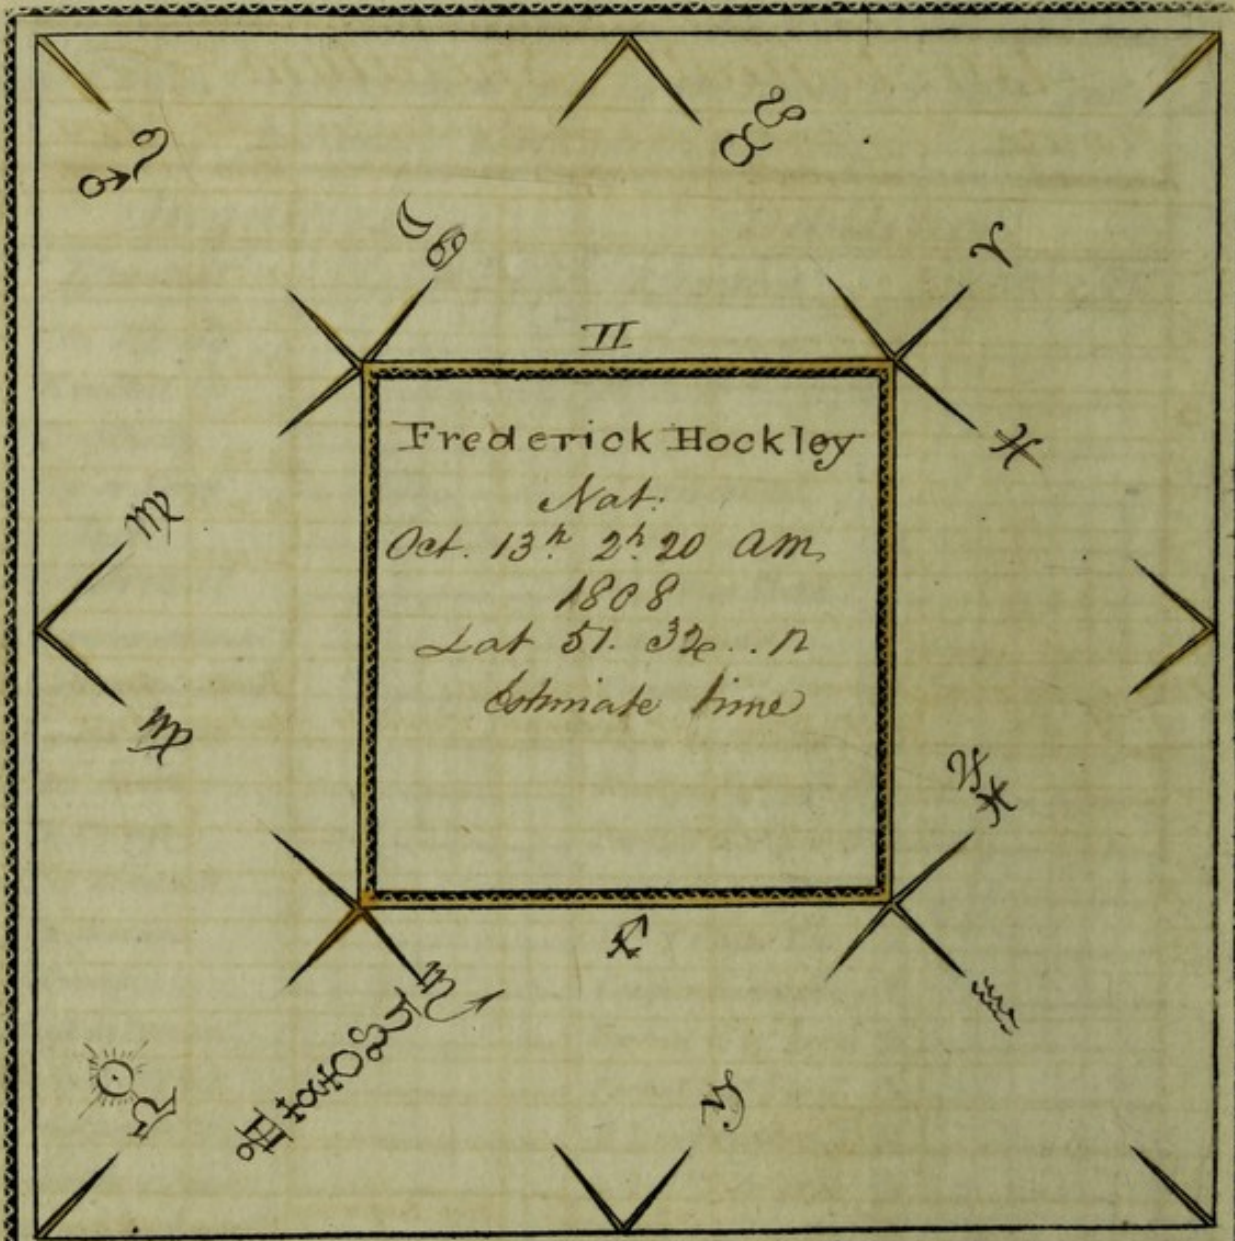 Frederick Hockley
Nat:
Oct. 13th 2h 20 am,
1808
Lat 51. 32 .. n
Estimate time
♂ ♌
☽ ♋
♊
☋ ♉
♈
♓
♍
♍
♃ ♓
♒
♐
♑
☉ ♎
♏ ♄ ☊ ♀ ☿ ♅